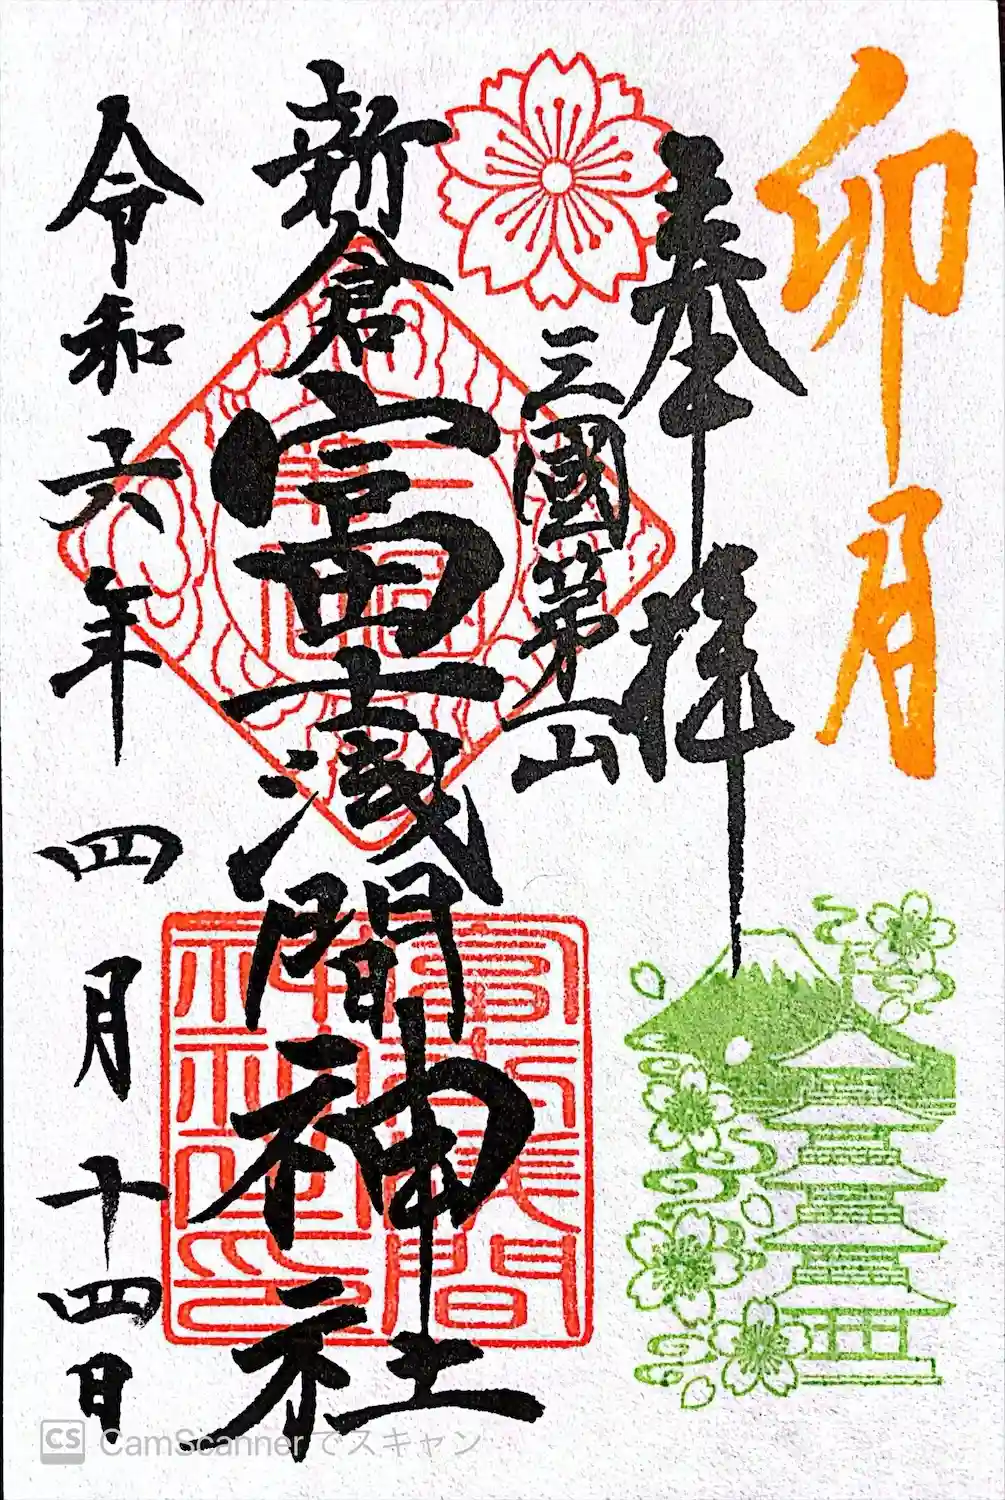 卯月
奉拝
三國第一山
新倉富士浅間神社
令和六年四月十四日
CS CamScannerでスキャン